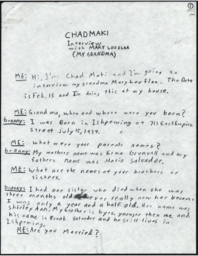 CHAD MAKI
Interview
with MARY LOU
(MY GRANDMA)
ME: Hi, I'm Chad Maki and I'm going to
interview my grandma Mary Lou. The Date
is Feb, 15 and Im doing this at my house.
ME: Grandma, when and where were you born?
Granny: I was Born in Ishpeming at East Empire
Street July 15, 1929.
ME: What were your parents names?
Granny: My mothers name was and my
fathers name was Mario Salvador.
ME: What are the names of your brothers or
sisters.
Granny: I had one sister who died when she was
three months old now her because
I was only a year and a half old. Her name was
Shirley Ann. My brother is years younger then me and
his name is Salvador and he still lives in
Ishpeming.
ME: Are you Married?